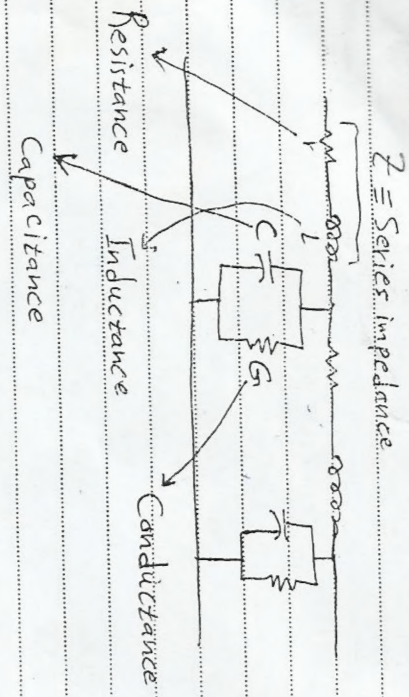 Z = Series impedance
r
L
C
G
Resistance
Inductance
Conductance
Capacitance